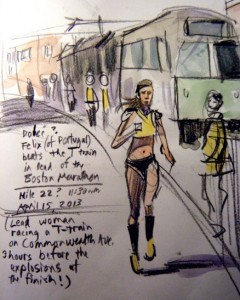 Dulce ?
Felix (of Portugal)
beats the T train
in lead of the
Boston Marathon
Mile 22? 11:30am
April 15, 2013
(Lead woman
racing a T-train
on Commonwealth Ave,
3 hours before the
explosions at
the finish!)